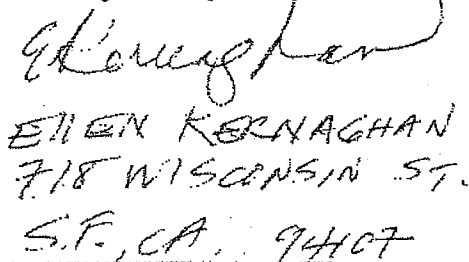 EKernaghan
EllEN KERNAGHAN
718 WISCONSIN ST.
S.F., CA, 94107